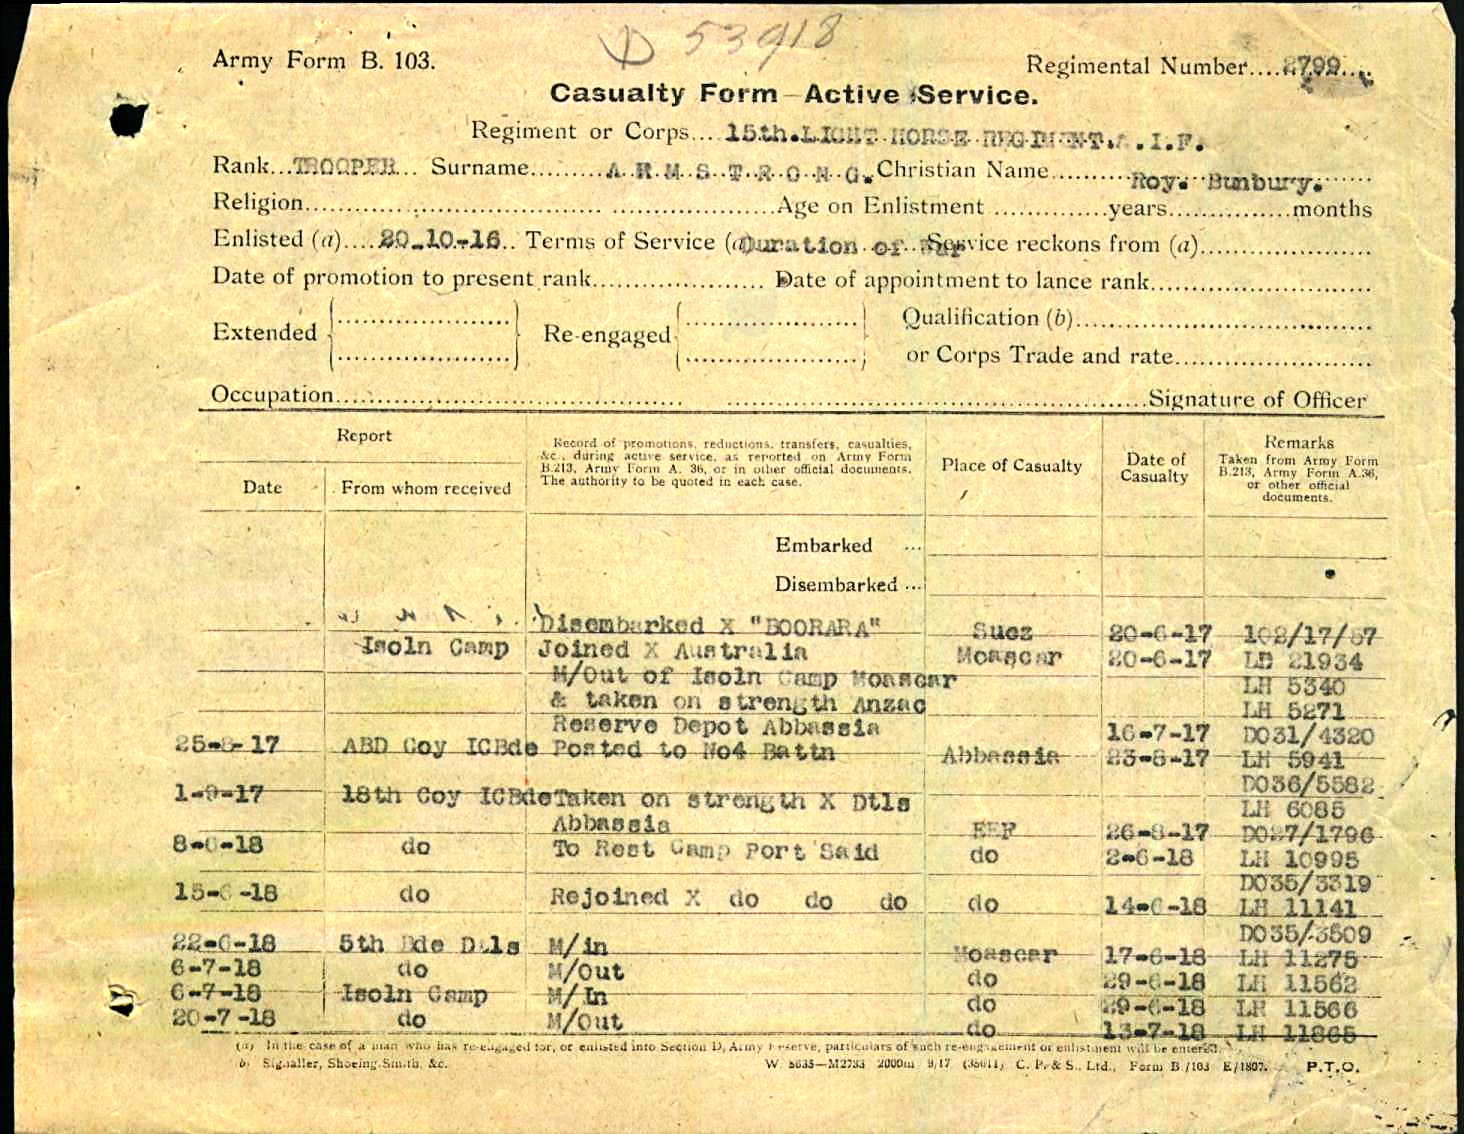 53918
Army Form B. 103.
Regimental Number....2799....
Casualty Form—Active Service.
Regiment or Corps....15th.LIGHT HORSE REGIMENT.A.I.F.
Rank...TROOPER... Surname.........A.R.M.S.T.R.O.N.G. Christian Name..........Roy. Bunbury.......
Religion............................................................Age on Enlistment .............years...............months
Enlisted (a)....20-10-16.. Terms of Service (a) Duration of War Service reckons from (a).....................
Date of promotion to present rank..................... Date of appointment to lance rank...........................
Extended ..................... Re-engaged ..................... Qualification (b)....................................
..................... ..................... or Corps Trade and rate........................
Occupation.................................................................................................Signature of Officer
Report
Date
From whom received
Record of promotions, reductions, transfers, casualties,
&c., during active service, as reported on Army Form
B.213, Army Form A. 36, or in other official documents.
The authority to be quoted in each case.
Place of Casualty
Date of
Casualty
Remarks
Taken from Army Form
B.213, Army Form A.36,
or other official
documents.
Embarked ...
Disembarked ...
Disembarked X "BOORARA" Suez 20-6-17 102/17/57
Isoln Camp Joined X Australia Moascar 20-6-17 LH 21934
M/Out of Isoln Camp Moascar LH 5340
& taken on strength Anzac LH 5271
Reserve Depot Abbassia 16-7-17 DO31/4320
25-8-17 ABD Coy ICBde Posted to No4 Battn Abbassia 23-8-17 LH 5941
DO36/5582
1-9-17 18th Coy ICBde Taken on strength X Dtls LH 6085
Abbassia EEF 26-8-17 DO27/1796
8-6-18 do To Rest Camp Port Said do 2-6-18 LH 10995
DO35/3319
15-6-18 do Rejoined X do do do do 14-6-18 LH 11141
DO35/3509
22-6-18 5th Bde Dtls M/in Moascar 17-6-18 LH 11275
6-7-18 do M/Out do 29-6-18 LH 11562
6-7-18 Isoln Camp M/In do 29-6-18 LH 11566
20-7-18 do M/Out do 13-7-18 LH 11865
(a) In the case of a man who has re-engaged for, or enlisted into Section D, Army Reserve, particulars of such re-engagement or enlistment will be entered.
(b) Signaller, Shoeing-Smith, &c. W 8635—M2733 2000m 9/17 (35611) C. P. & S., Ltd., Form B/103 E/1807. P.T.O.